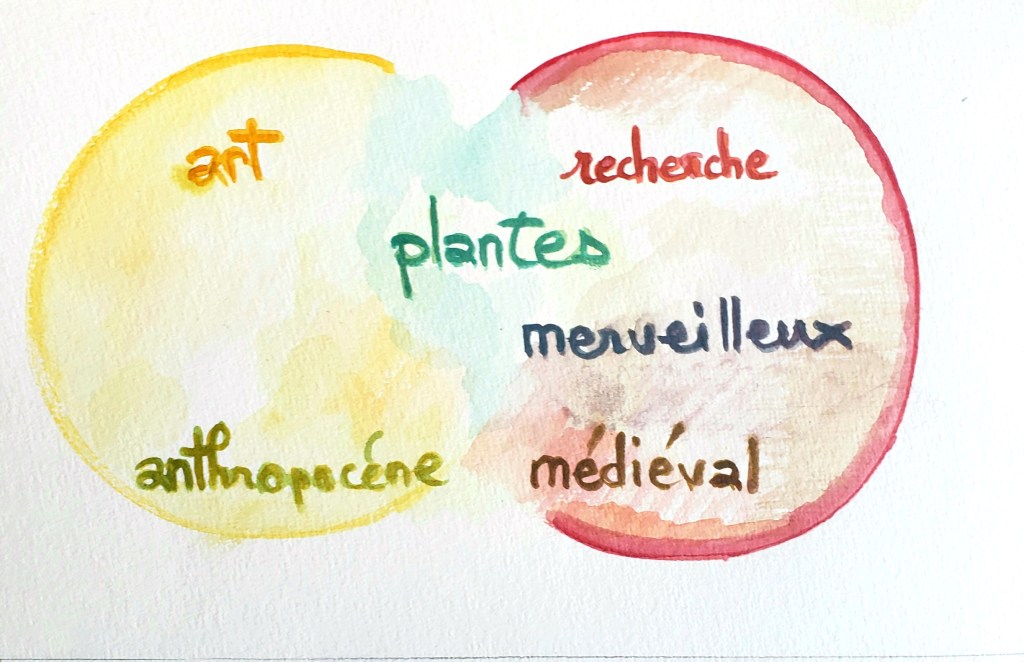 art
recherche
plantes
merveilleux
anthropocéne
médiéval